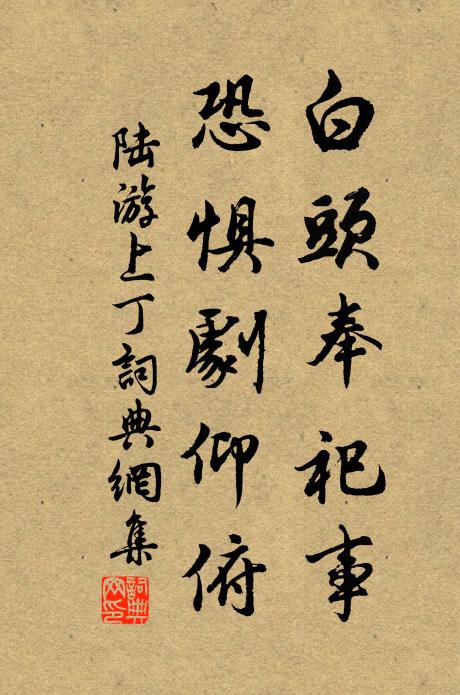 白頭奉祀事
恐惧劇仰俯
陆游上丁詞典網集
詞典网印